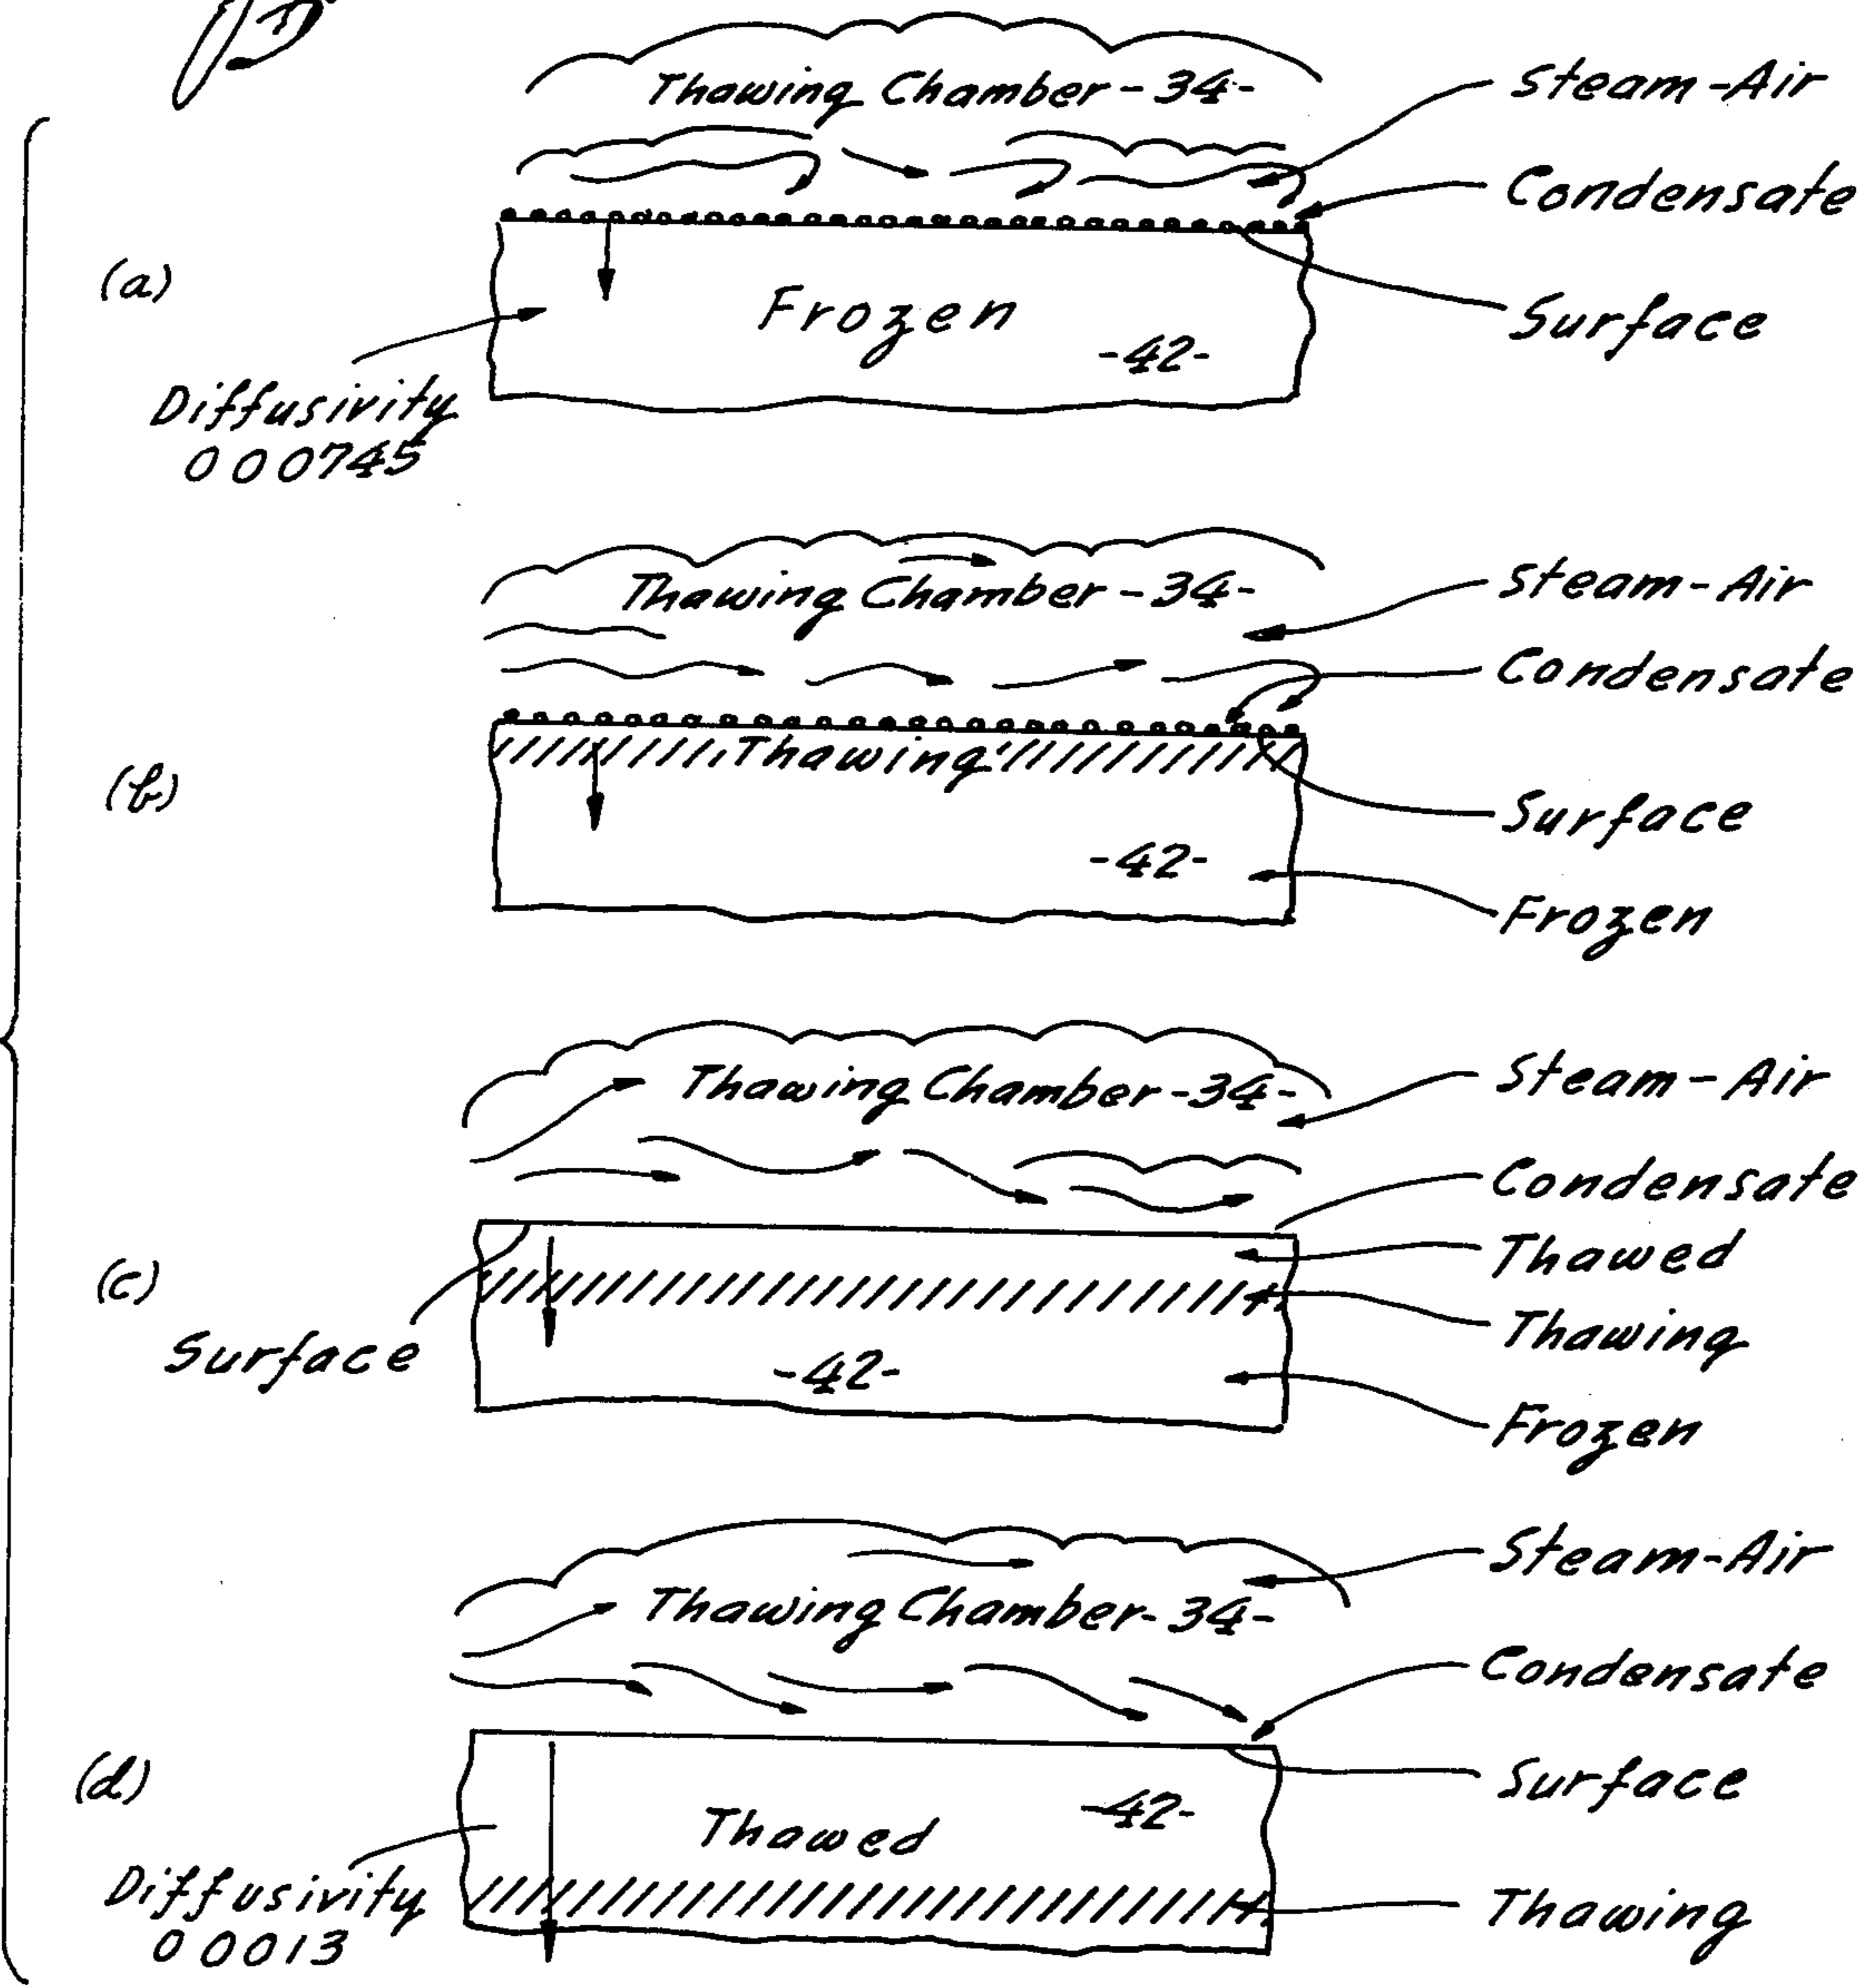 Thawing Chamber -34-
Steam-Air
Condensate
(a)
Frozen
Surface
-42-
Diffusivity
0 0 0745
Thawing Chamber -34-
Steam-Air
Condensate
Thawing
(b)
Surface
-42-
Frozen
Thawing Chamber -34-
Steam-Air
Condensate
Thawed
(c)
Thawing
Surface
-42-
Frozen
Steam-Air
Thawing Chamber -34-
Condensate
(d)
Surface
-42-
Thawed
Diffusivity
0 0013
Thawing